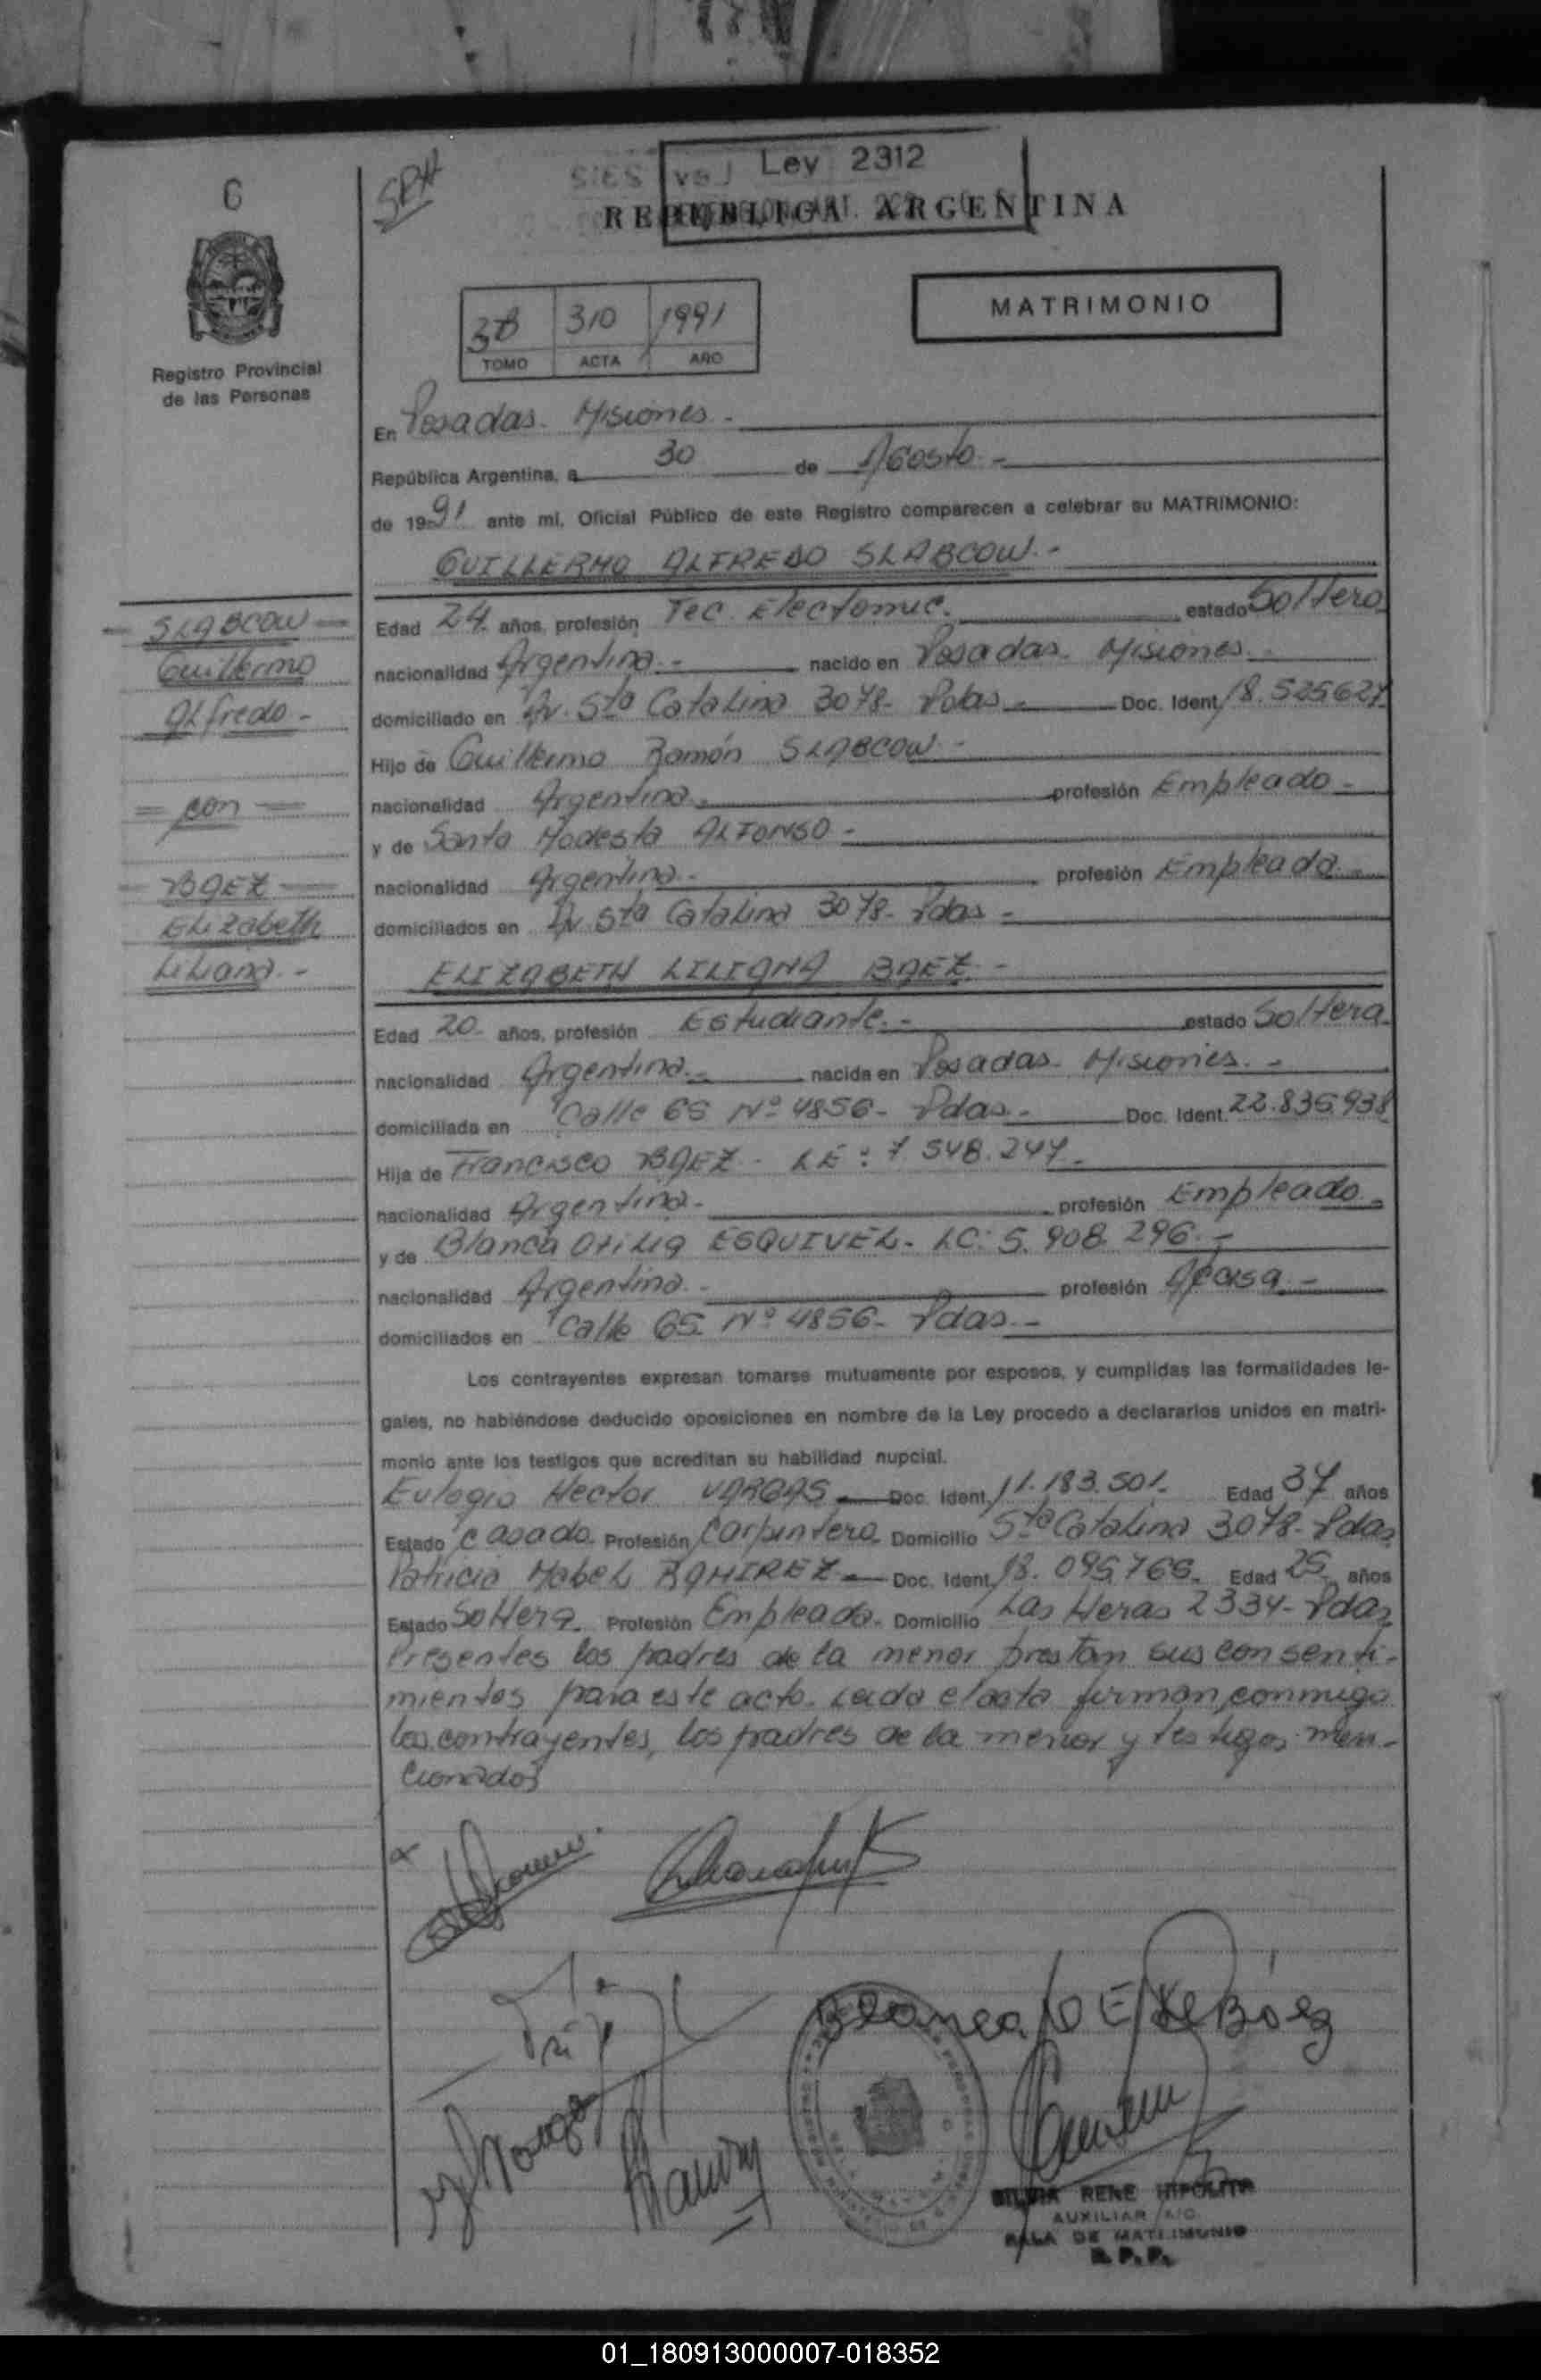 6
SRH
Ley 2312
REPUBLICA ARGENTINA
3B 310 1991
TOMO ACTA AÑO
MATRIMONIO
Registro Provincial
de las Personas
En Posadas. Misiones.-
República Argentina, a 30 de Agosto.-
de 1991 ante mi, Oficial Público de este Registro comparecen a celebrar su MATRIMONIO:
GUILLERMO ALFREDO SLABCOW.-
SLABCOW
Guillermo
Alfredo-
= con =
BAEZ
Elizabeth
Liliana.-
Edad 24. años, profesión Tec. Electomic. estado Soltero
nacionalidad Argentina.- nacido en Posadas- Misiones.
domiciliado en Av. Sta Catalina 3078- Pdas.- Doc. Ident. 18.525627
Hijo de Guillermo Ramón SLABCOW.-
nacionalidad Argentina. profesión Empleado-
y de Santa Modesta ALFONSO-
nacionalidad Argentina.- profesión Empleada.-
domiciliados en Av. Sta Catalina 3078- Pdas-
ELIZABETH LILIANA BAEZ.-
Edad 20- años, profesión Estudiante.- estado Soltera.
nacionalidad Argentina.- nacida en Posadas- Misiones.-
domiciliada en Calle 65 Nº 4856- Pdas- Doc. Ident. 22.835.938
Hija de Francisco BAEZ- LE: 7.548.247.
nacionalidad Argentina.- profesión Empleado-
y de Blanca Otilia ESQUIVEL- LC: 5.908.296.-
nacionalidad Argentina.- profesión
domiciliados en Calle 65 Nº 4856- Pdas.-
Los contrayentes expresan tomarse mutuamente por esposos, y cumplidas las formalidades le-
gales, no habiéndose deducido oposiciones en nombre de la Ley procedo a declararlos unidos en matri-
monio ante los testigos que acreditan su habilidad nupcial.
Eulogio Hector VARGAS- Doc. Ident. 11.183.501. Edad 37 años
Estado casado. Profesión Carpintero. Domicilio Sta Catalina 3078- Pdas
Patricia Mabel RAMIREZ- Doc. Ident. 18.095.765. Edad 25 años
Estado Soltera. Profesión Empleada- Domicilio Las Heras 2334- Pdas
Presentes los padres de la menor prestan sus consenti-
mientos para este acto. Leida el acta firman conmigo
los contrayentes, los padres de la menor y testigos men-
cionados
Blanca O E de Báez
SILVIA RENE HIPOLITO
AUXILIAR
SALA DE MATRIMONIO
R. P. P.
01_180913000007-018352